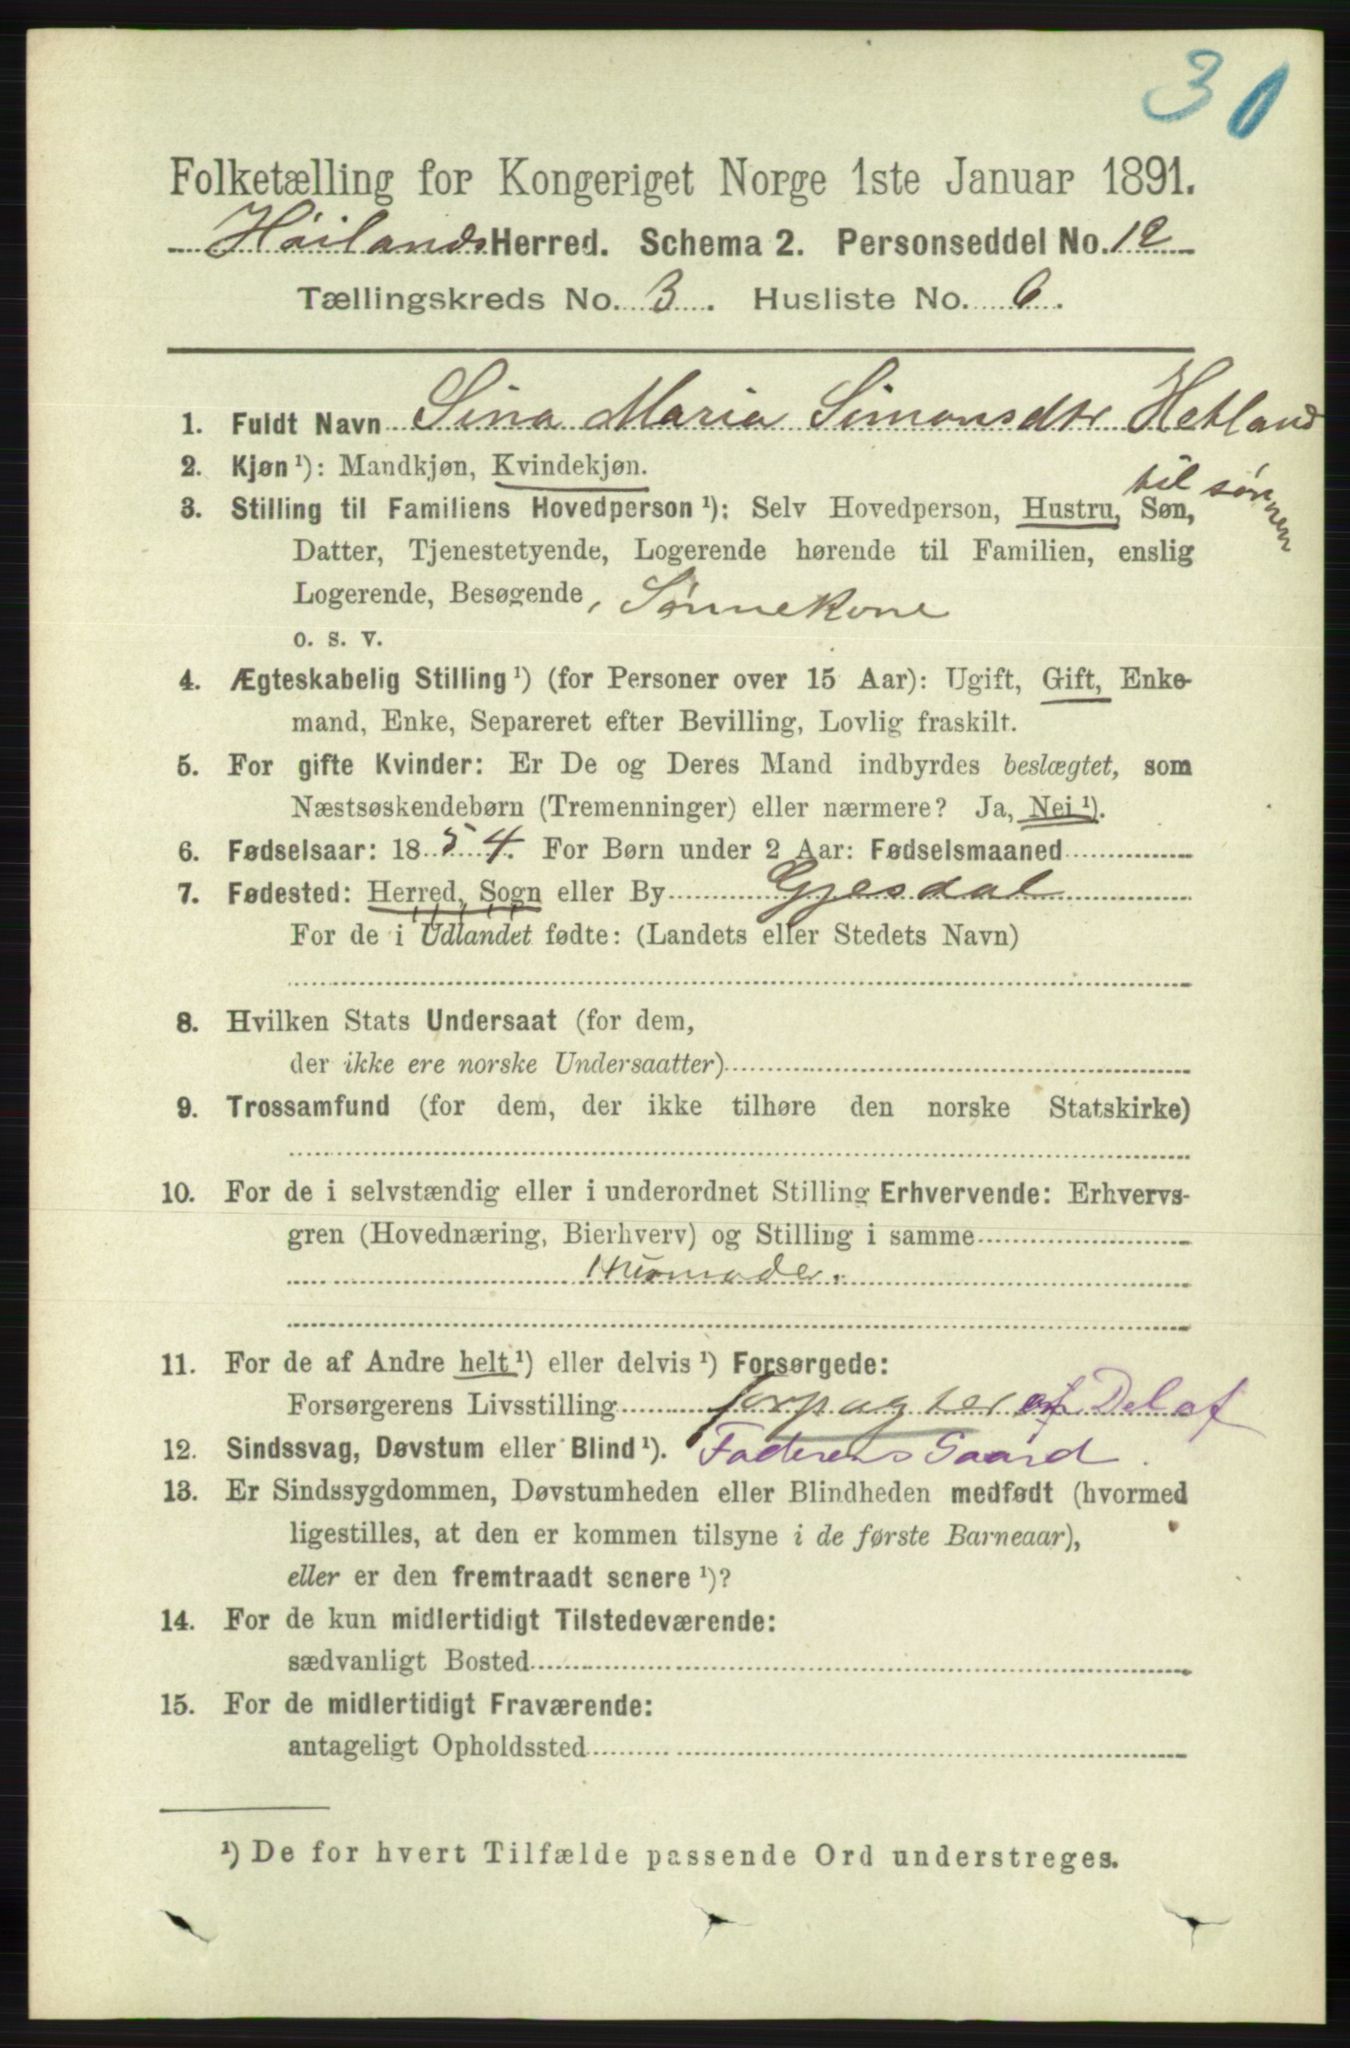 30
Folketælling for Kongeriget Norge 1ste Januar 1891.
Höilands Herred. Schema 2. Personseddel No. 12
Tællingskreds No. 3. Husliste No. 6.
1. Fuldt Navn Sina Maria Simonsdtr Hetland
2. Kjøn ¹): Mandkjøn, Kvindekjøn.
til sönnen
3. Stilling til Familiens Hovedperson ¹): Selv Hovedperson, Hustru, Søn,
Datter, Tjenestetyende, Logerende hørende til Familien, enslig
Logerende, Besøgende, Sönnekone
o. s. v.
4. Ægteskabelig Stilling ¹) (for Personer over 15 Aar): Ugift, Gift, Enke-
mand, Enke, Separeret efter Bevilling, Lovlig fraskilt.
5. For gifte Kvinder: Er De og Deres Mand indbyrdes beslægtet, som
Næstsøskendebørn (Tremenninger) eller nærmere? Ja, Nei ¹).
6. Fødselsaar: 1854. For Børn under 2 Aar: Fødselsmaaned
7. Fødested: Herred, Sogn eller By Gjesdal
For de i Udlandet fødte: (Landets eller Stedets Navn)
8. Hvilken Stats Undersaat (for dem,
der ikke ere norske Undersaatter)
9. Trossamfund (for dem, der ikke tilhøre den norske Statskirke)
10. For de i selvstændig eller i underordnet Stilling Erhvervende: Erhvervs-
gren (Hovednæring, Bierhverv) og Stilling i samme
Husmoder.
11. For de af Andre helt ¹) eller delvis ¹) Forsørgede:
Forsørgerens Livsstilling forpagter af Del af
12. Sindssvag, Døvstum eller Blind ¹). Faderens Gaard.
13. Er Sindssygdommen, Døvstumheden eller Blindheden medfødt (hvormed
ligestilles, at den er kommen tilsyne i de første Barneaar),
eller er den fremtraadt senere ¹)?
14. For de kun midlertidigt Tilstedeværende:
sædvanligt Bosted
15. For de midlertidigt Fraværende:
antageligt Opholdssted
¹) De for hvert Tilfælde passende Ord understreges.